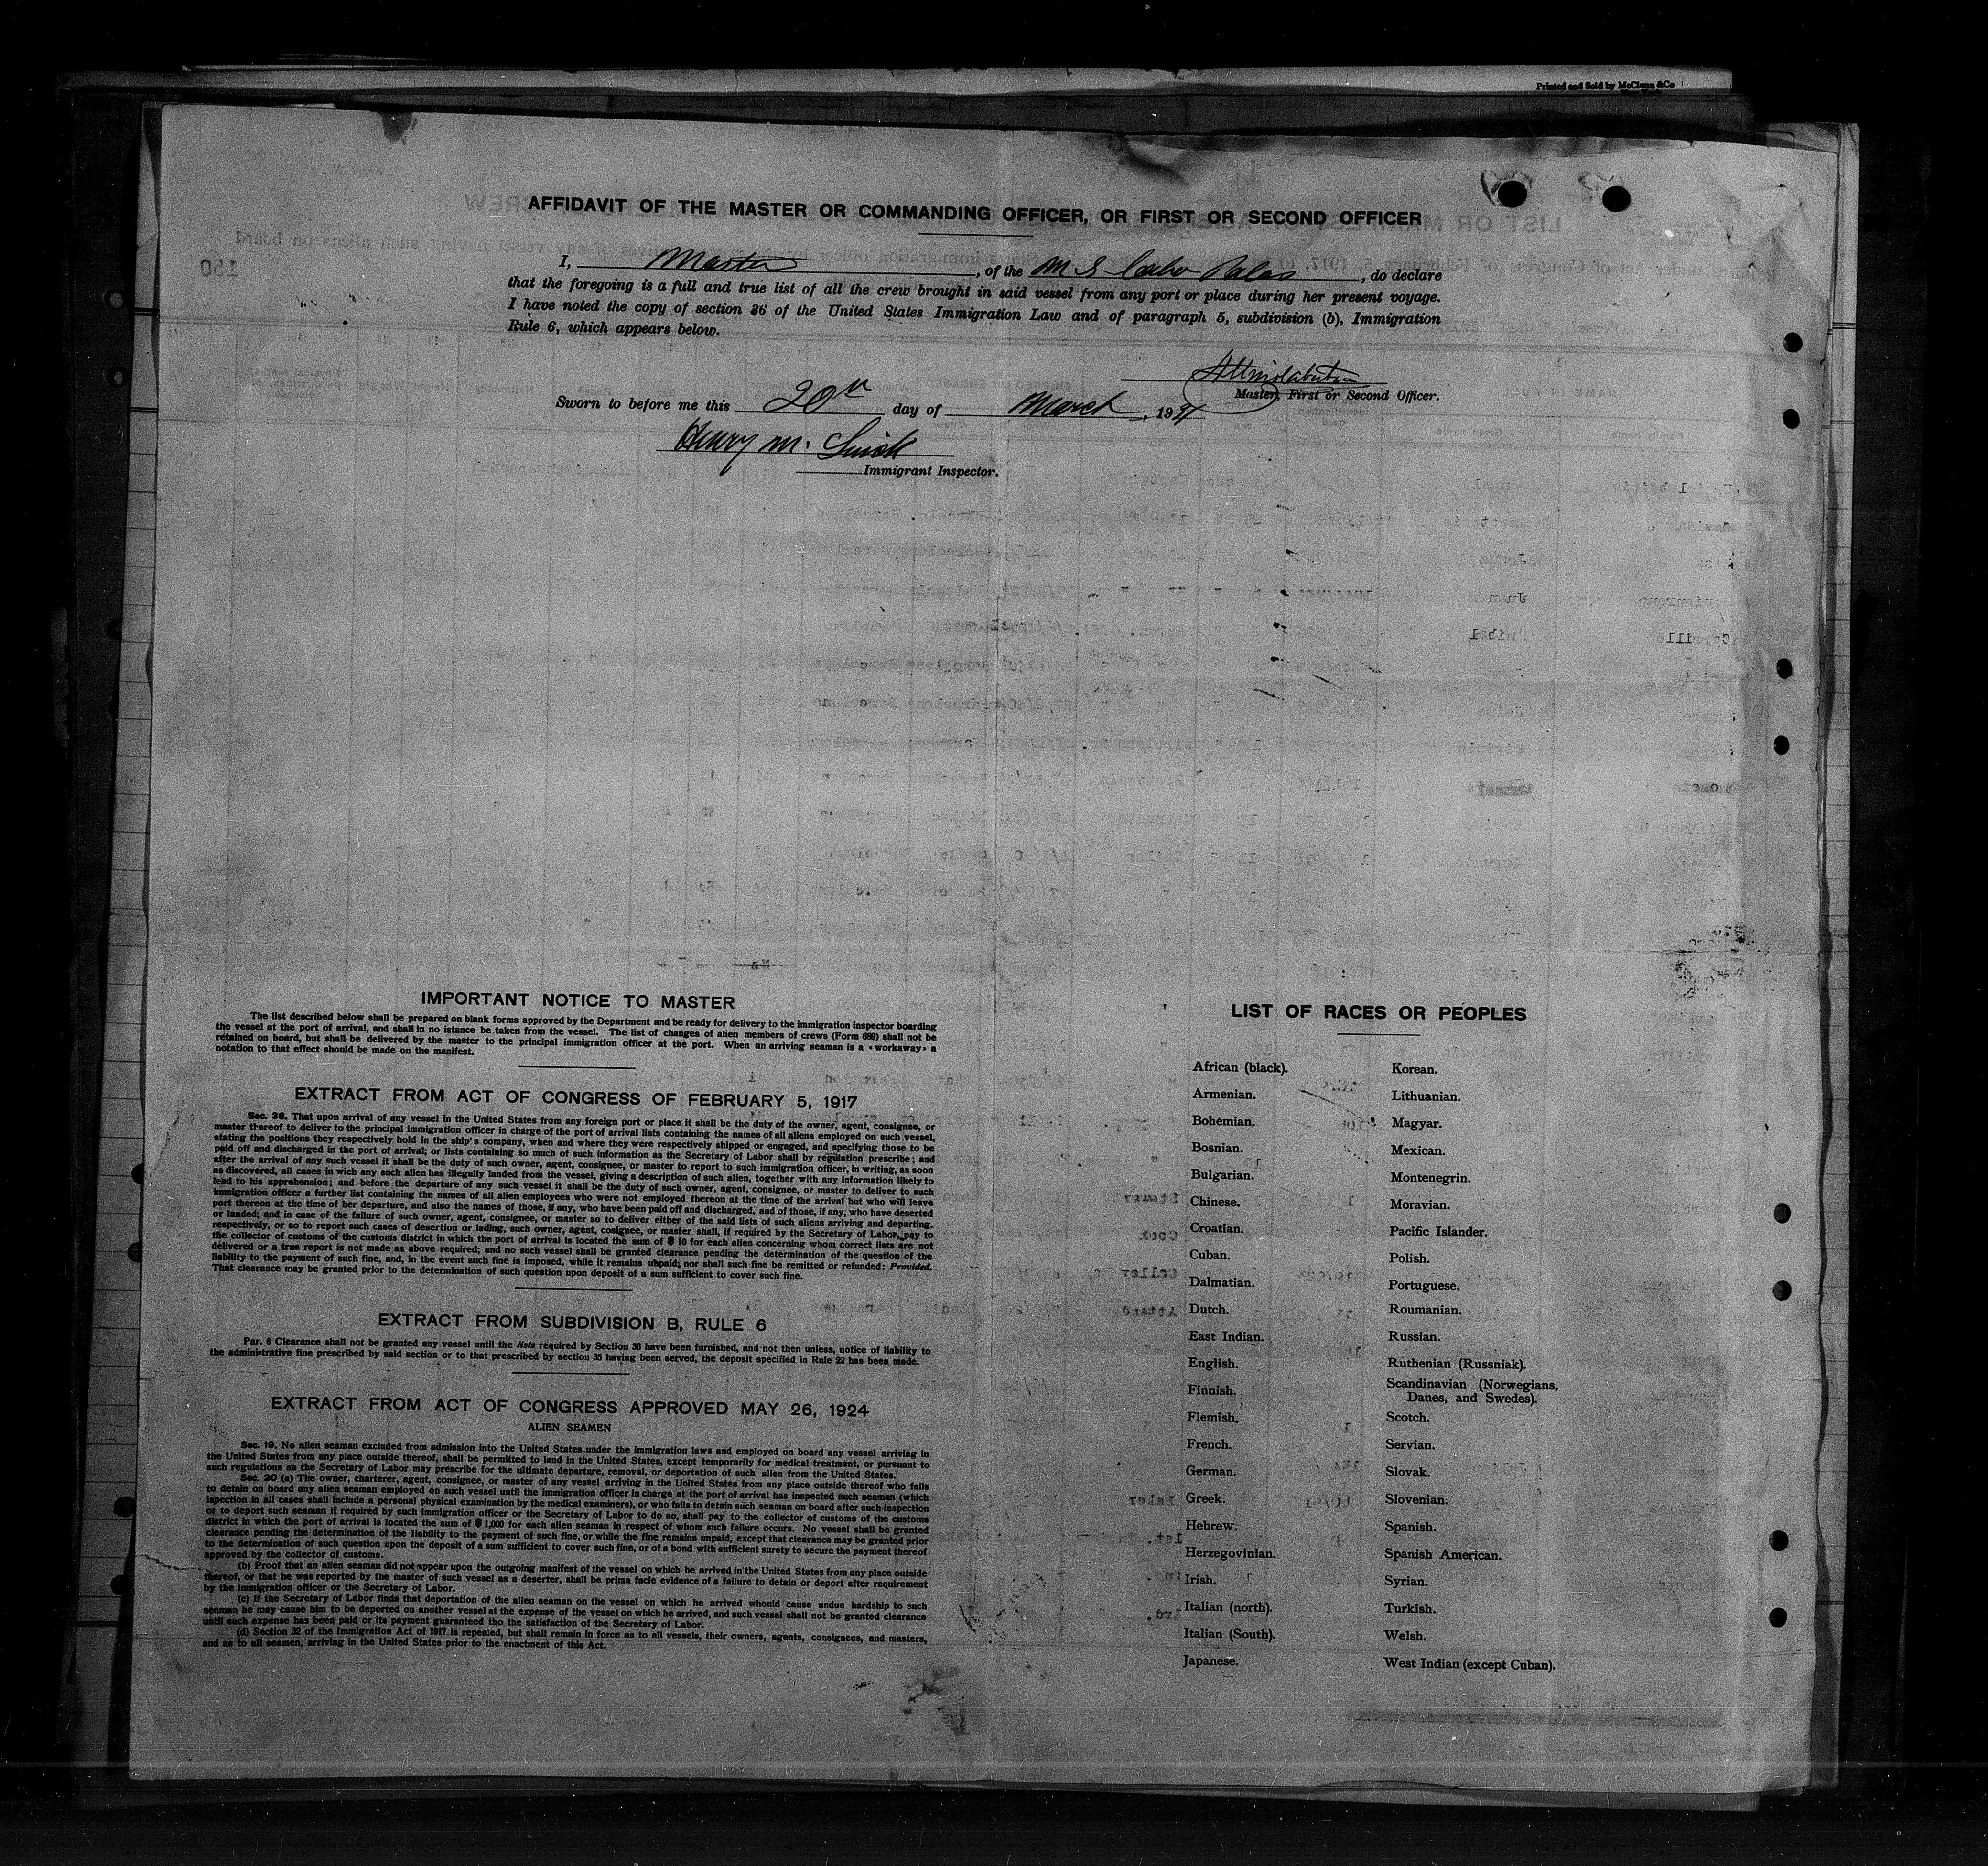 Printed and Sold by McClunn &Co
AFFIDAVIT OF THE MASTER OR COMMANDING OFFICER, OR FIRST OR SECOND OFFICER
I, Master, of the M S Cabo Palos, do declare
that the foregoing is a full and true list of all the crew brought in said vessel from any port or place during her present voyage.
I have noted the copy of section 36 of the United States Immigration Law and of paragraph 5, subdivision (b), Immigration
Rule 6, which appears below.
Master, First or Second Officer.
Sworn to before me this 20th day of March, 1931
Henry M.
Immigrant Inspector.
IMPORTANT NOTICE TO MASTER
The list described below shall be prepared on blank forms approved by the Department and be ready for delivery to the immigration inspector boarding
the vessel at the port of arrival, and shall in no istance be taken from the vessel. The list of changes of alien members of crews (Form 689) shall not be
retained on board, but shall be delivered by the master to the principal immigration officer at the port. When an arriving seaman is a «workaway» a
notation to that effect should be made on the manifest.
EXTRACT FROM ACT OF CONGRESS OF FEBRUARY 5, 1917
Sec. 36. That upon arrival of any vessel in the United States from any foreign port or place it shall be the duty of the owner, agent, consignee, or
master thereof to deliver to the principal immigration officer in charge of the port of arrival lists containing the names of all aliens employed on such vessel,
stating the positions they respectively hold in the ship's company, when and where they were respectively shipped or engaged, and specifying those to be
paid off and discharged in the port of arrival; or lists containing so much of such information as the Secretary of Labor shall by regulation prescribe; and
after the arrival of any such vessel it shall be the duty of such owner, agent, consignee, or master to report to such immigration officer, in writing, as soon
as discovered, all cases in wich any such alien has illegally landed from the vessel, giving a description of such alien, together with any information likely to
lead to his apprehension; and before the departure of any such vessel it shall be the duty of such owner, agent, consignee, or master to deliver to such
immigration officer a further list containing the names of all alien employees who were not employed thereon at the time of the arrival but who will leave
port thereon at the time of her departure, and also the names of those, if any, who have been paid off and discharged, and of those, if any, who have deserted
or landed; and in case of the failure of such owner, agent, consignee, or master so to deliver either of the said lists of such aliens arriving and departing.
respectively, or so to report such cases of desertion or lading, such owner, agent, cosignee, or master shall, if required by the Secretary of Labor, pay to
the collector of customs of the customs district in which the port of arrival is located the sum of $ 10 for each alien concerning whom correct lists are not
delivered or a true report is not made as above required; and no such vessel shall be granted clearance pending the determination of the question of the
liability to the payment of such fine, and, in the event such fine is imposed, while it remains uhpaid; nor shall such fine be remitted or refunded: Provided.
That clearance may be granted prior to the determination of such question upon deposit of a sum sufficient to cover such fine.
EXTRACT FROM SUBDIVISION B, RULE 6
Par. 6 Clearance shall not be granted any vessel until the lists required by Section 36 have been furnished, and not then unless, notice of liability to
the administrative fine prescribed by said section or to that prescribed by section 35 having been served, the deposit specified in Rule 22 has been made.
EXTRACT FROM ACT OF CONGRESS APPROVED MAY 26, 1924
ALIEN SEAMEN
Sec. 19. No alien seaman excluded from admission into the United States under the immigration laws and employed on board any vessel arriving in
the United States from any place outside thereof, shall be permitted to land in the United States, except temporarily for medical treatment, or pursuant to
such regulations as the Secretary of Labor may prescribe for the ultimate departure, removal, or deportation of such alien from the United States.
Sec. 20 (a) The owner, charterer, agent, consignee, or master of any vessel arriving in the United States from any place outside thereof who fails
to detain on board any alien seaman employed on such vessel until the immigration officer in charge at the port of arrival has inspected such seaman (which
ispection in all cases shall include a personal physical examination by the medical examiners), or who fails to detain such seaman on board after such inspection
or to deport such seaman if required by such immigration officer or the Secretary of Labor to do so, shall pay to the collector of customs of the customs
district in which the port of arrival is located the sum of $ 1,000 for each alien seaman in respect of whom such failure occurs. No vessel shall be granted
clearance pending the determination of the liability to the payment of such fine, or while the fine remains unpaid, except that clearance may be granted prior
to the determination of such question upon the deposit of a sum sufficient to cover such fine, or of a bond with sufficient surety to secure the payment thereof
approved by the collector of customs.
(b) Proof that an alien seaman did not appear upon the outgoing manifest of the vessel on which he arrived in the United States from any place outside
thereof, or that he was reported by the master of such vessel as a deserter, shall be prima facie evidence of a failure to detain or deport after requirement
by the immigration officer or the Secretary of Labor.
(c) If the Secretary of Labor finds that deportation of the alien seaman on the vessel on which he arrived whould cause undue hardship to such
seaman he may cause him to be deported on another vessel at the expense of the vessel on which he arrived, and such vessel shall not be granted clearance
until such expense has been paid or its payment guaranteed tho the satisfaction of the Secretary of Labor.
(d) Section 32 of the Immigration Act of 1917 is repealed, but shall remain in force as to all vessels, their owners, agents, consignees, and masters,
and as to all seamen, arriving in the United States prior to the enactment of this Act.
LIST OF RACES OR PEOPLES
African (black).
Armenian.
Bohemian.
Bosnian.
Bulgarian.
Chinese.
Croatian.
Cuban.
Dalmatian.
Dutch.
East Indian.
English.
Finnish.
Flemish.
French.
German.
Greek.
Hebrew.
Herzegovinian.
Irish.
Italian (north).
Italian (South).
Japanese.
Korean.
Lithuanian.
Magyar.
Mexican.
Montenegrin.
Moravian.
Pacific Islander.
Polish.
Portuguese.
Roumanian.
Russian.
Ruthenian (Russniak).
Scandinavian (Norwegians,
Danes, and Swedes).
Scotch.
Servian.
Slovak.
Slovenian.
Spanish.
Spanish American.
Syrian.
Turkish.
Welsh.
West Indian (except Cuban).